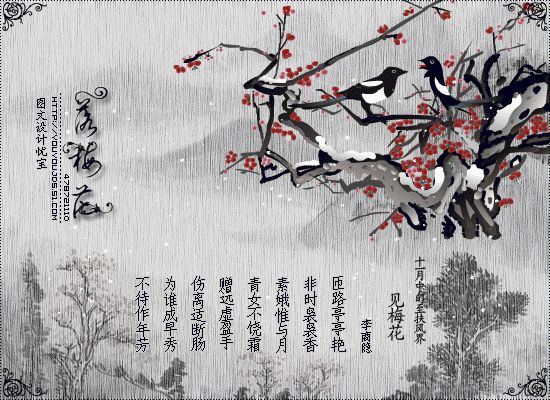 十一月中旬至扶风界
见梅花
李商隐
匝路亭亭艳
非时裛裛香
素娥惟与月
青女不饶霜
赠远虚盈手
伤离适断肠
为谁成早秀
不待作年芳
落梅花
478721110
HTTP://YOUYOUJDS.51.COM
图文设计忧室